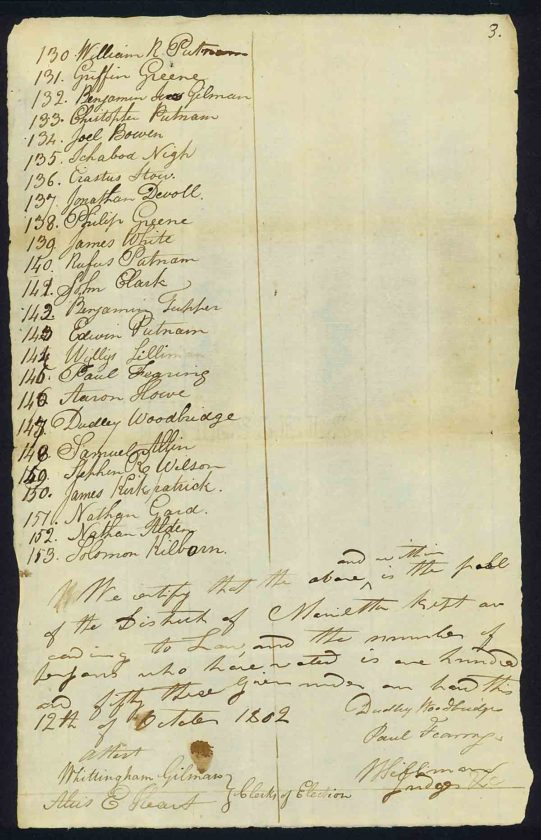 3.
130 William R Putnam
131. Griffin Greene
132. Benjamin Ives Gilman
133. Christopher Putnam
134. Joel Bowen
135. Ichabod Nigh
136. Erastus How.
137. Jonathan Devoll.
138. Philip Greene
139 James White
140. Rufus Putnam
141. John Clark
142. Benjamin Tupper
143 Edwin Putnam
144 Wyllys Silliman
145. Paul Fearing
146 Aaron Howe
147. Dudley Woodbridge
148 Samuel Allin
149. Stephen R Wilson
150. James Kirkpatrick.
151. Nathan Gard.
152. Nathan Alden
153. Solomon Kilborn.
and within
We certify that the above, is the poll
of the District of Marietta Kept ac
cording to Law, and the number of
persons who have voted is one hundred
and fifty three Given under our hand this
12th of October 1802
Dudley Woodbridge
Paul Fearing
attest
Whittingham Gilman
Clerks of Election
Judges